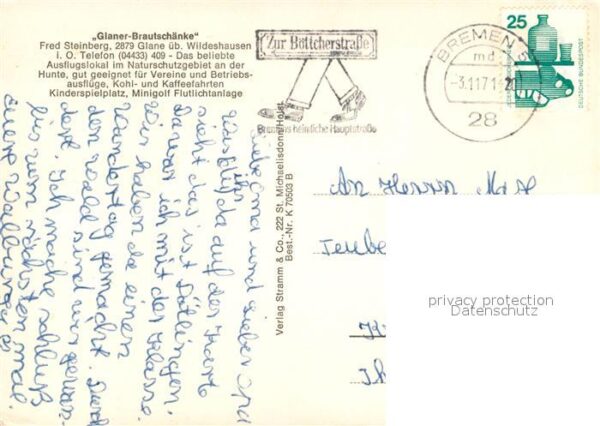 „Glaner-Brautschänke"
Fred Steinberg, 2879 Glane üb. Wildeshausen
i. O. Telefon (04433) 409 - Das beliebte
Ausflugslokal im Naturschutzgebiet an der
Hunte, gut geeignet für Vereine und Betriebs-
ausflüge, Kohl- und Kaffeefahrten
Kinderspielplatz, Minigolf Flutlichtanlage
Zur Böttcherstraße
Bremens heimliche Hauptstraße
BREMEN 5
md
-3.11.71-20
28
25
DEUTSCHE BUNDESPOST
Verlag Stramm & Co., 222 St. Michaelisdonn/Holst.
Best.-Nr. K 70503 B
Liebe Oma und lieber Opa
ihr
da auf der Karte
seht das ist Dötlingen.
Da war ich mit der Klasse.
Wir haben da einen
Wandertag gemacht. Durch
den Wald sind wir gewan-
dert. Ich mache schluß
bis zum nächsten mal.
Eure Walburga
An Herrn
privacy protection
Datenschutz